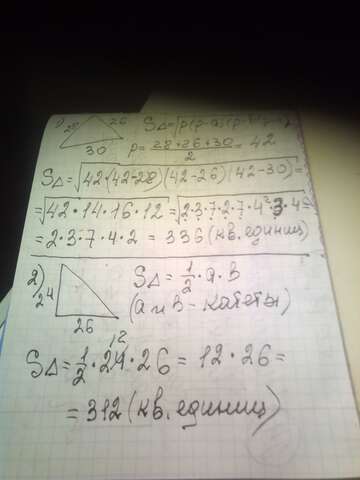 1) 28 26 S△=√p(p-a)(p-b)(p-c)
30 p= 28+26+30 / 2 = 42
S△=√42·(42-28)(42-26)(42-30)=
=√42·14·16·12=√2·3·7·2·7·4²·3·4=
=2·3·7·4·2 = 336 (кв. единиц)
2) 24 S△=1/2·a·b
26 (a и b - катеты)
12
S△=1/2·24·26 = 12·26=
=312 (кв. единиц)